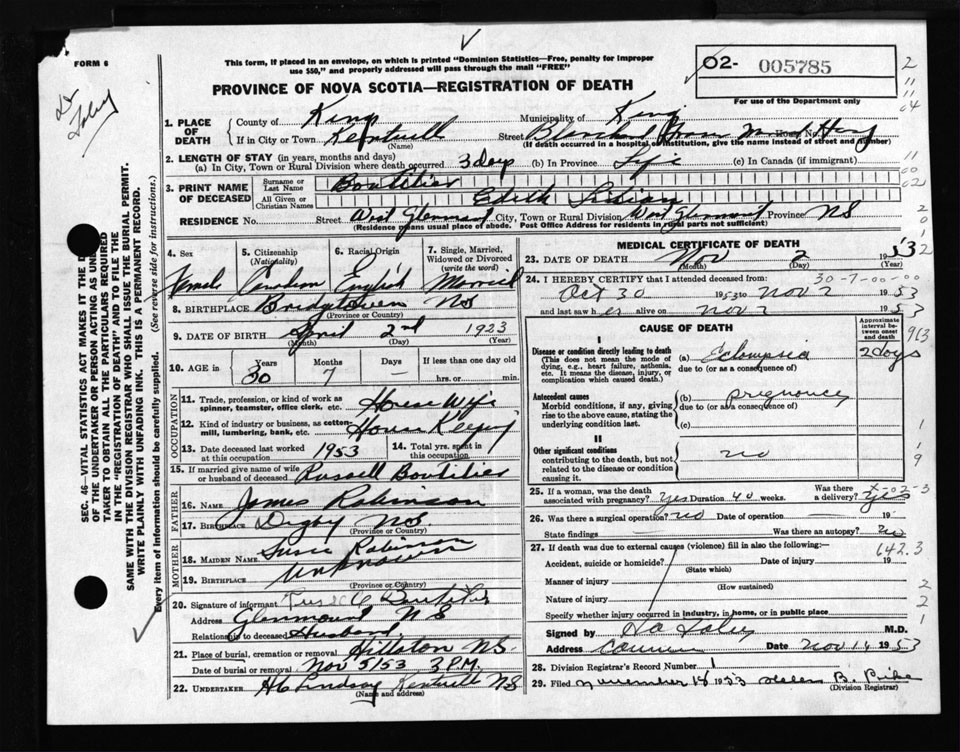 FORM 6
This form, if placed in an envelope, on which is printed "Dominion Statistics—Free, penalty for improper
use $50," and properly addressed will pass through the mail "FREE"
PROVINCE OF NOVA SCOTIA—REGISTRATION OF DEATH
O2- 005785
For use of the Department only
SEC. 46—VITAL STATISTICS ACT MAKES IT THE D
OF THE UNDERTAKER OR PERSON ACTING AS UND
TAKER TO OBTAIN ALL THE PARTICULARS REQUIRED
IN THE "REGISTRATION OF DEATH" AND TO FILE THE
SAME WITH THE DIVISION REGISTRAR WHO SHALL ISSUE THE BURIAL PERMIT.
WRITE PLAINLY WITH UNFADING INK. THIS IS A PERMANENT RECORD.
Every item of Information should be carefully supplied. (See reverse side for instructions.)
1. PLACE OF DEATH
County of Kings Municipality of Kings
If in City or Town Kentville Street Blanchard House No.
(Name) (If death occurred in a hospital or institution, give the name instead of street and number)
2. LENGTH OF STAY (in years, months and days)
(a) In City, Town or Rural Division where death occurred 3 days (b) In Province Life (c) In Canada (if immigrant)
3. PRINT NAME OF DECEASED
Surname or Last Name Boutilier
All Given or Christian Names Edith Lilian
RESIDENCE No. Street West Glenmont City, Town or Rural Division West Glenmont Province NS
(Residence means usual place of abode. Post Office Address for residents in rural parts not sufficient)
4. Sex Female
5. Citizenship (Nationality) Canadian
6. Racial Origin English
7. Single, Married, Widowed or Divorced (write the word) Married
8. BIRTHPLACE Bridgetown NS
(Province or Country)
9. DATE OF BIRTH April 2nd 1923
(Month) (Day) (Year)
10. AGE in Years 30 Months 7 Days —
If less than one day old
hrs. or min.
OCCUPATION
11. Trade, profession, or kind of work as spinner, teamster, office clerk, etc. House Wife
12. Kind of industry or business, as cotton-mill, lumbering, bank, etc. House Keeping
13. Date deceased last worked at this occupation 1953
14. Total yrs. spent in this occupation
15. If married give name of wife or husband of deceased Russell Boutilier
FATHER
16. NAME James Robinson
17. BIRTHPLACE Digby NS
(Province or Country)
MOTHER
18. MAIDEN NAME Susie Robinson
19. BIRTHPLACE Unknown
(Province or Country)
20. Signature of informant Boutilier
Address Glenmount N S
Relationship to deceased Husband
21. Place of burial, cremation or removal Hillaton NS.
Date of burial or removal Nov 5/53 3 P.M.
22. UNDERTAKER Lindsay Kentville NS
(Name and address)
MEDICAL CERTIFICATE OF DEATH
23. DATE OF DEATH Nov 2 1953
(Month) (Day) (Year)
24. I HEREBY CERTIFY that I attended deceased from: 30-7-00-00
Oct 30 1953 to Nov 2 1953
and last saw h er alive on Nov 2 1953
CAUSE OF DEATH
Approximate interval between onset and death
I
Disease or condition directly leading to death (a) Eclampsia 2 days
(This does not mean the mode of dying, e.g., heart failure, asthenia, etc. It means the disease, injury, or complication which caused death.)
due to (or as a consequence of)
Antecedent causes (b) pregnancy
Morbid conditions, if any, giving rise to the above cause, stating the underlying condition last.
due to (or as a consequence of)
(c)
II
Other significant conditions no
contributing to the death, but not related to the disease or condition causing it.
25. If a woman, was the death associated with pregnancy? Yes Duration 40 weeks. Was there a delivery? Yes
26. Was there a surgical operation? no Date of operation 19
State findings Was there an autopsy? no
27. If death was due to external causes (violence) fill in also the following:— 642.3
Accident, suicide or homicide? Date of injury 19
(State which)
Manner of injury
(How sustained)
Nature of injury
Specify whether injury occurred in industry, in home, or in public place
Signed by M.D.
Address Date Nov 1953
28. Division Registrar's Record Number 1
29. Filed November 18 1953 Helen B.
(Division Registrar)